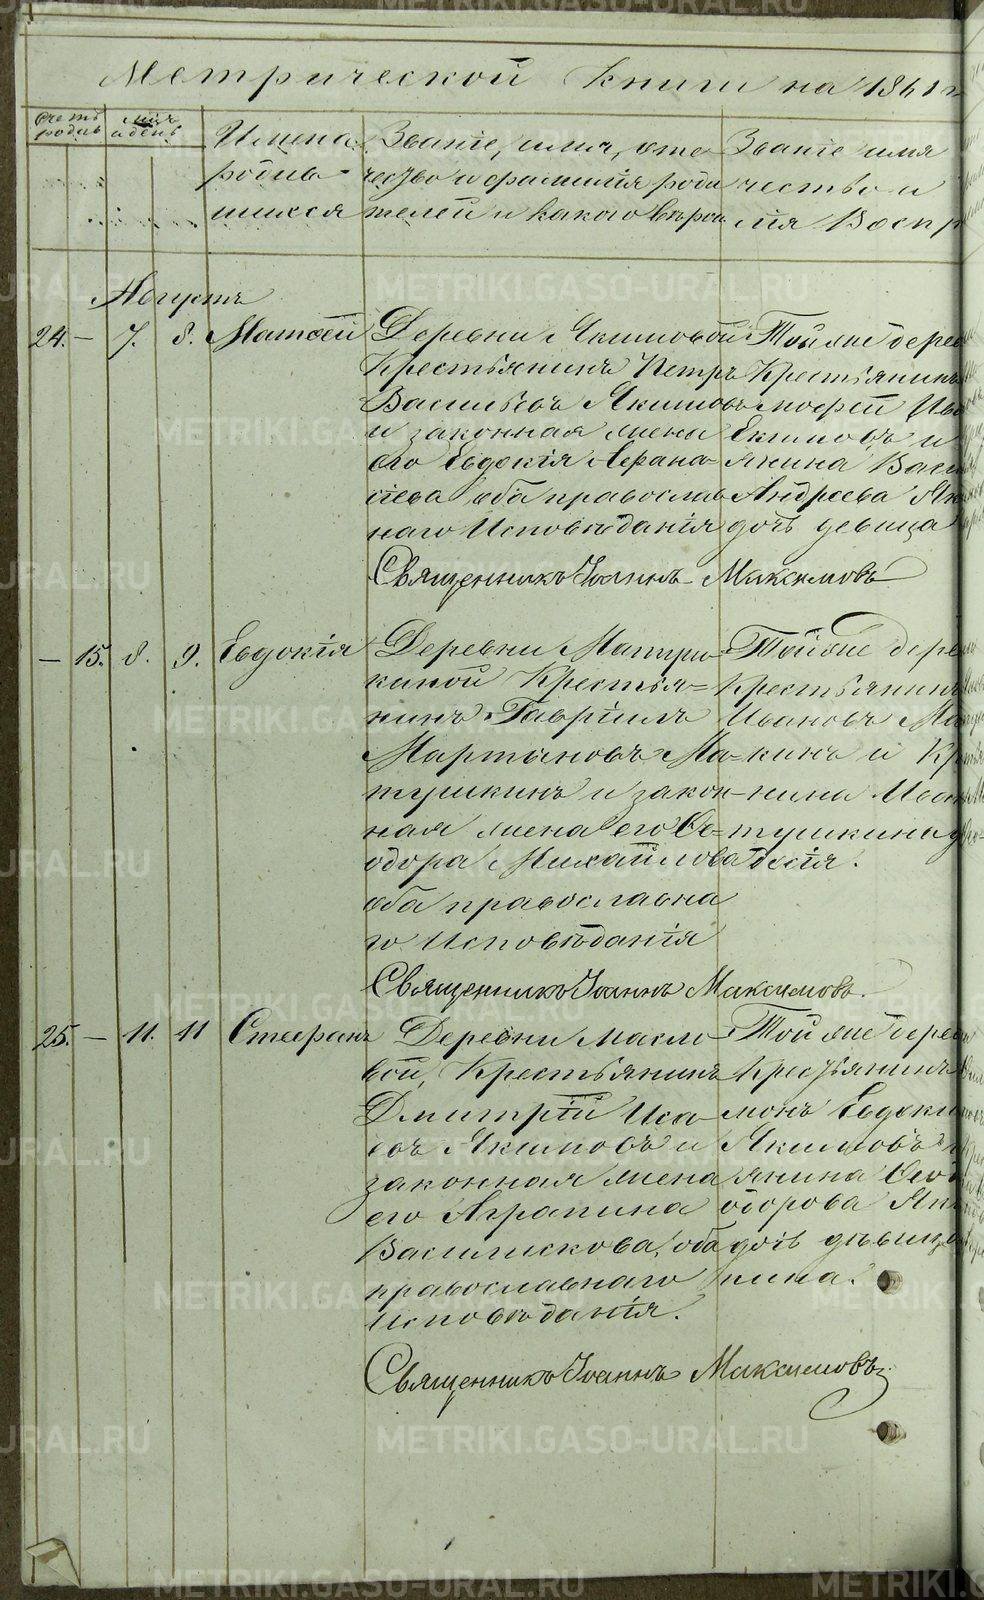 Метрической книги на 1861 г
Счетъ родив
мѣсяц и день
Имена родив-
шихся
Званіе, имя, отe
чество и фамилія роди
телей и какого вѣрои
Званіе имя
чество и
лія Воспр
Августъ
24. — 7. 8. Матѳей
Деревни Якимовой
Крестьянинъ Петръ
Васильевъ Якимовъ
и законная жена
его Евдокія Афана-
сіева оба православ
наго Исповѣданія
Той же дерев
Крестьянинъ
Екимовъ и
янина Васи
Андреева Як
дочь девица
Священникъ Іоаннъ Максимовъ
— 15. 8. 9. Евдокія
Деревни Матуш-
киной Крестья=
нинъ Гавріилъ
Мартыновъ Ма-
тушкинъ и закон-
ная жена его Ѳе=
одора Михайлова
оба православна
го Исповѣданія
Той же дерев
Крестьянинъ
Ивановъ Ма
кинъ и Кр
нина Иван
тушкина д
докія.
Священникъ Іоаннъ Максимовъ.
25. — 11. 11 Стефанъ
Деревни Масло
вой, Крестьянинъ
Дмитрій Иса
евъ Якимовъ и
законная жена
его Аграпина
Василискова, оба
православнаго
Исповѣданія.
Той же дерев
Крестьянинъ
монъ Евдоким
Якимовъ и
янина Ѳеод
одорова Яки
дочь дѣвица
пина.
Священникъ Іоаннъ Максимовъ.
METRIKI.GASO-URAL.RU